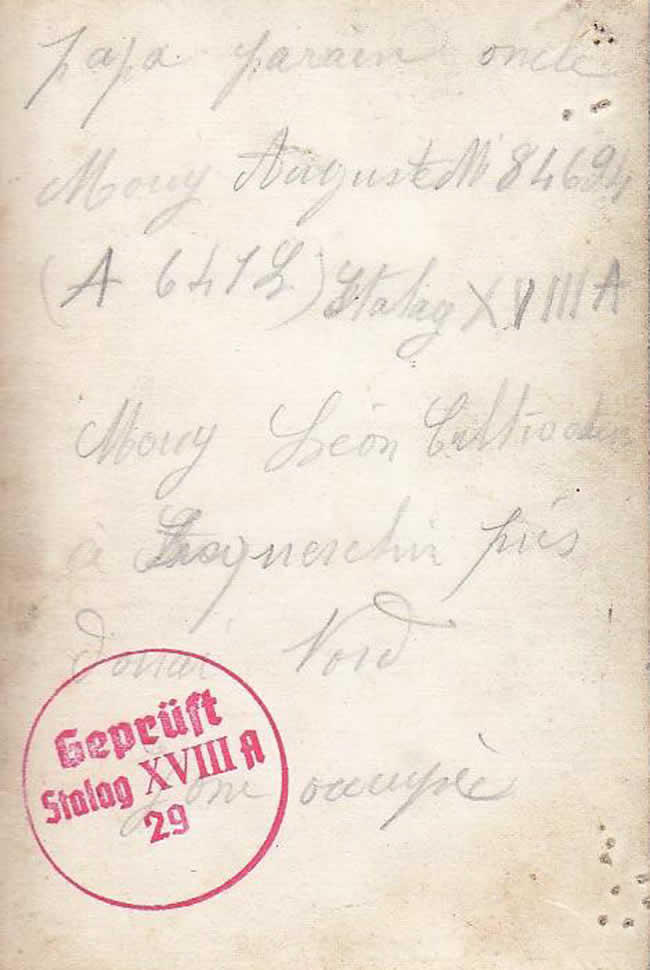 papa parain oncle
Mouy Auguste M 84694
(A 641L) Stalag XVIII A
Mouy Léon
à près
Douai Nord
Zone occupée
Geprüft
Stalag XVIII A
29